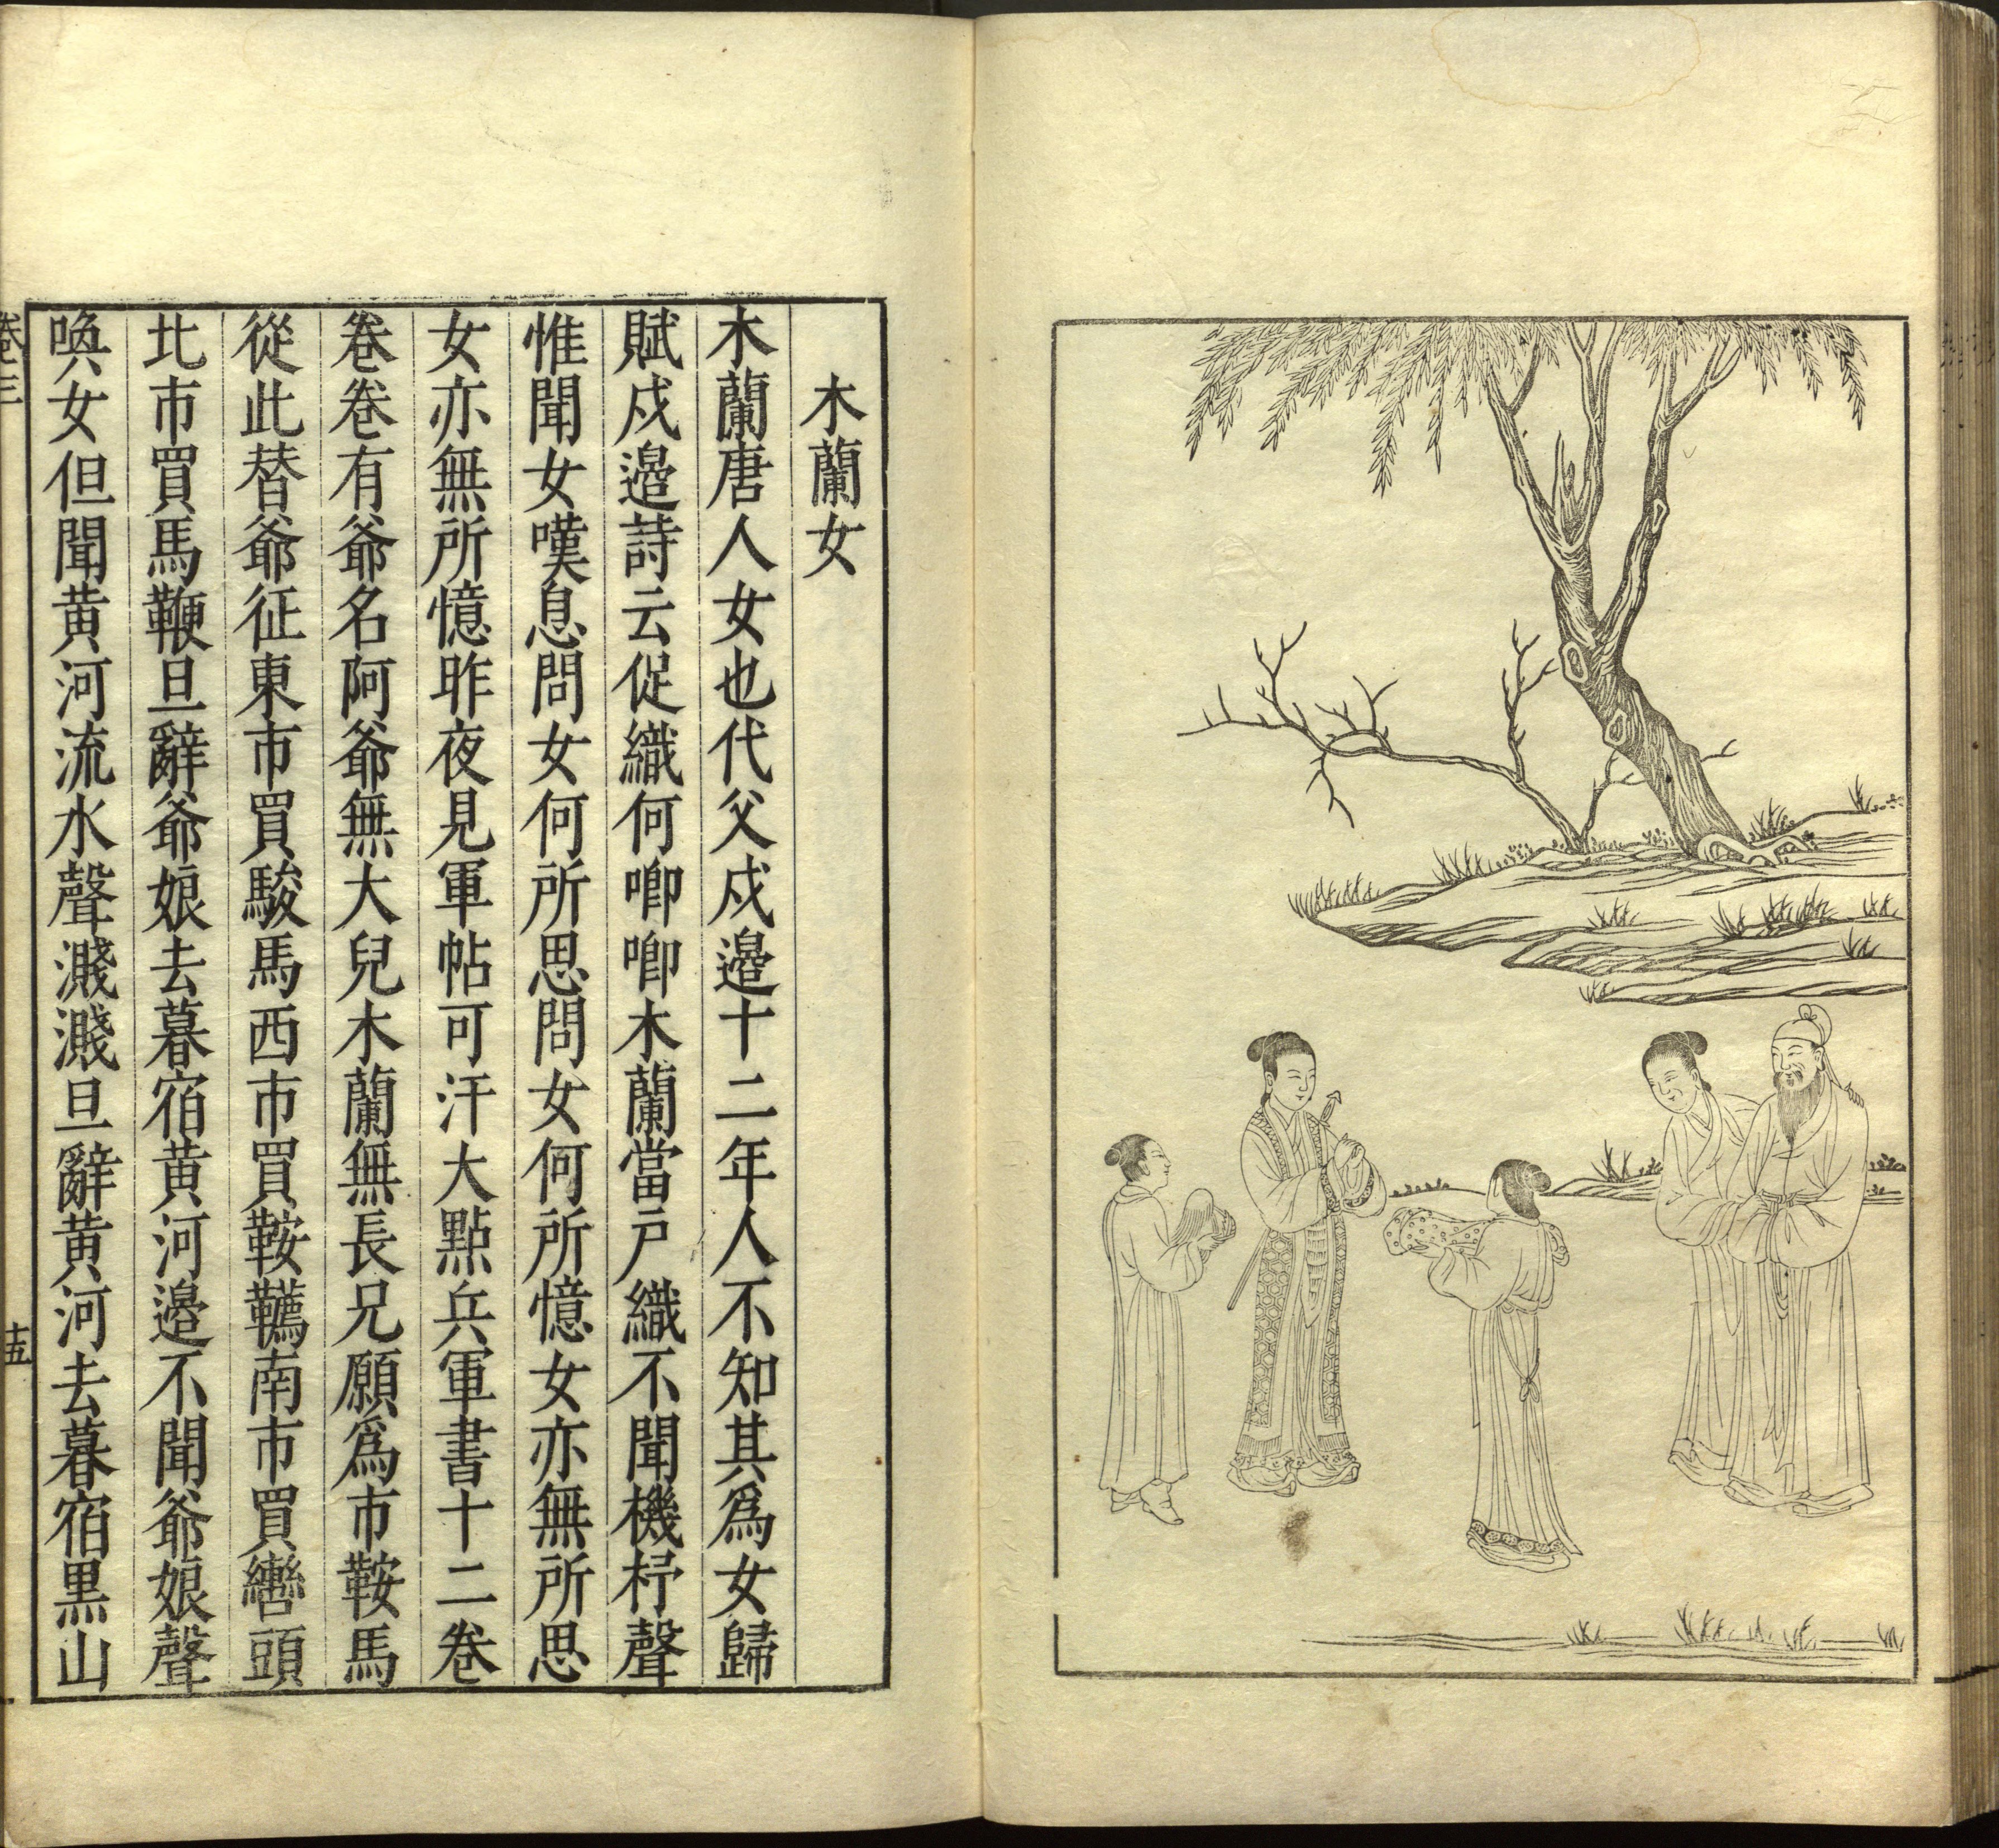 木蘭女
木蘭唐人女也代父戍邊十二年人不知其爲女歸
賦戍邊詩云促織何唧唧木蘭當户織不聞機杼聲
惟聞女嘆息問女何所思問女何所憶女亦無所思
女亦無所憶昨夜見軍帖可汗大點兵軍書十二卷
卷卷有爺名阿爺無大兒木蘭無長兄願爲市鞍馬
從此替爺征東市買駿馬西市買鞍韉南市買轡頭
北市買馬鞭旦辭爺娘去暮宿黄河邊不聞爺娘聲
喚女但聞黄河流水聲濺濺旦辭黄河去暮宿黒山
卷三
十五